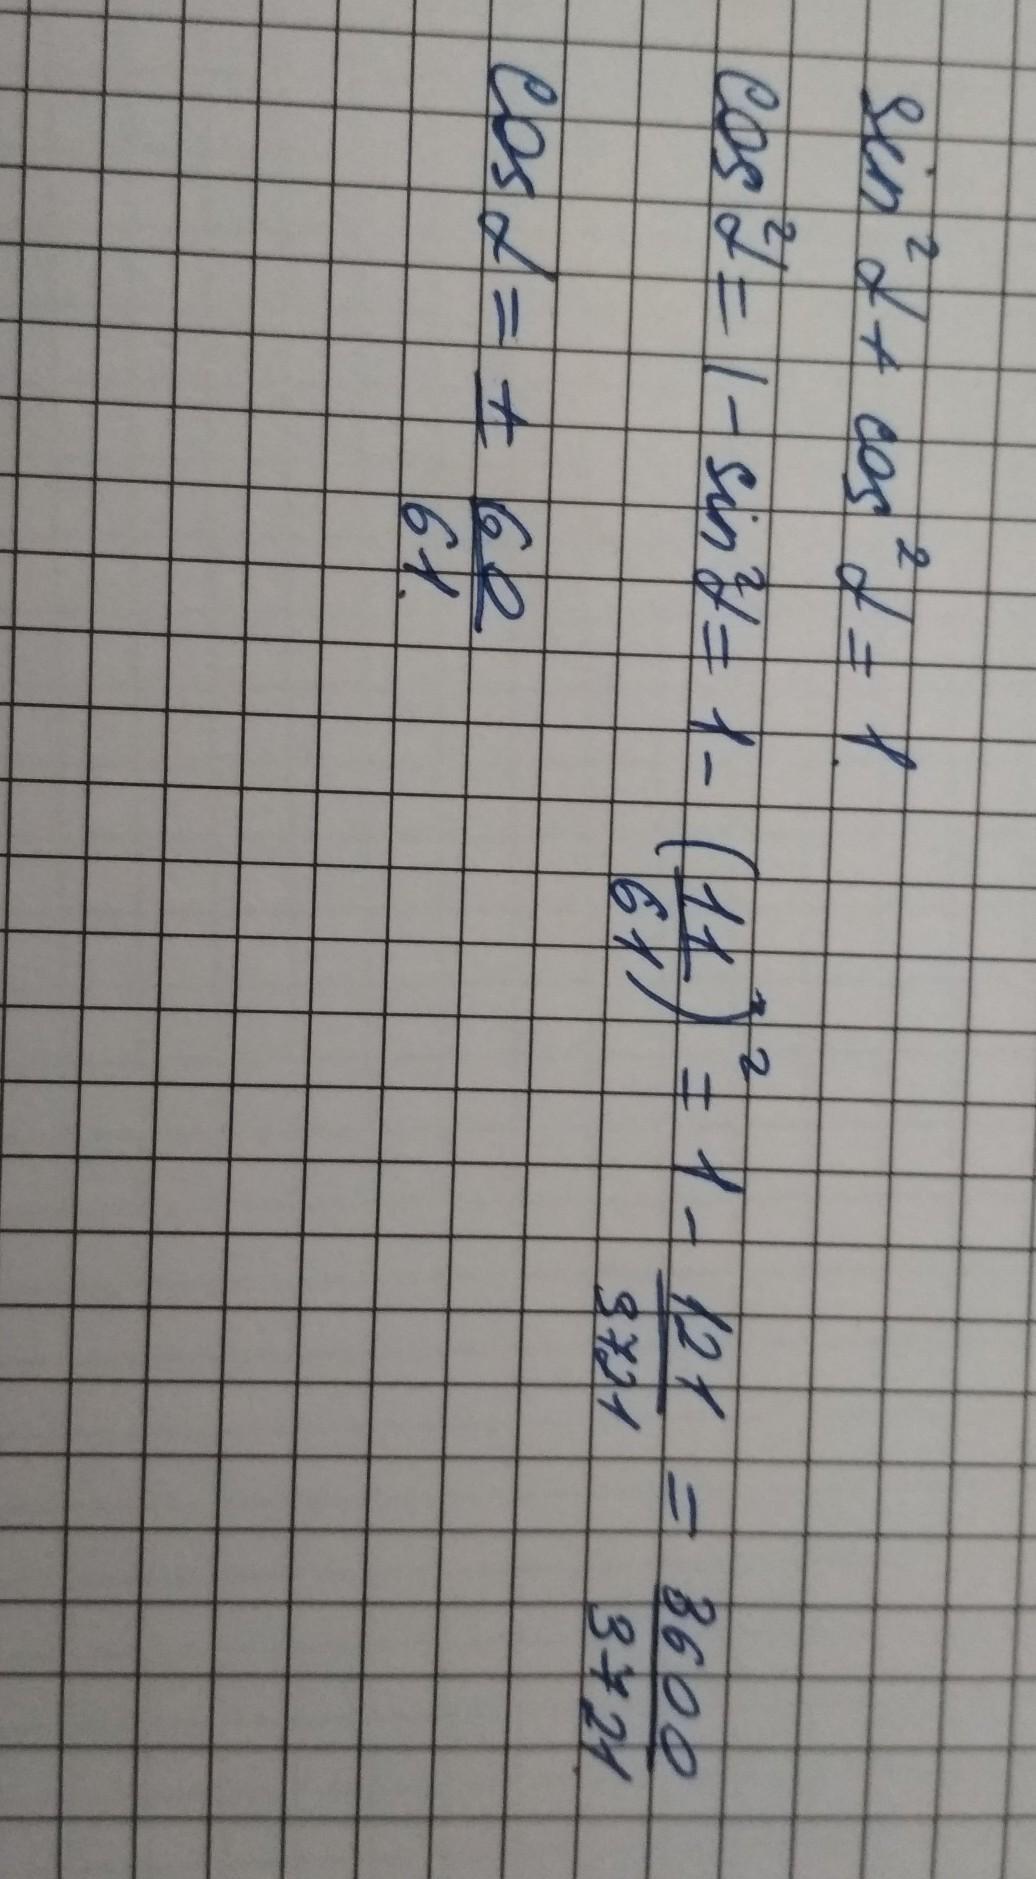 sin² α + cos² α = 1.
cos² α = 1 - sin² α = 1 - (11/61)² = 1 - 121/3721 = 3600/3721
cos α = ± 60/61.